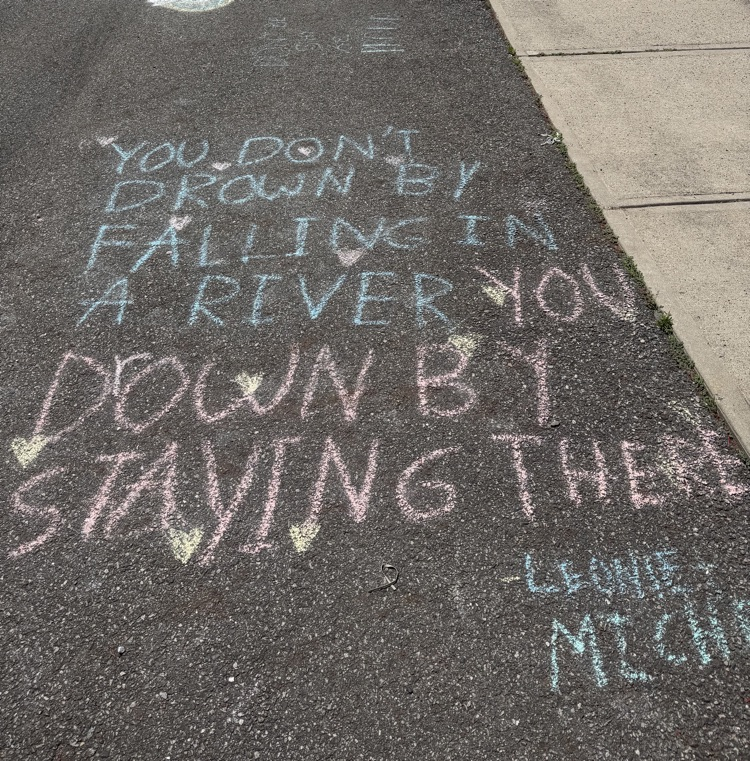 YOU DON'T
DROWN BY
FALLING IN
A RIVER YOU
DROWN BY
STAYING THERE
LEONIE
MICH